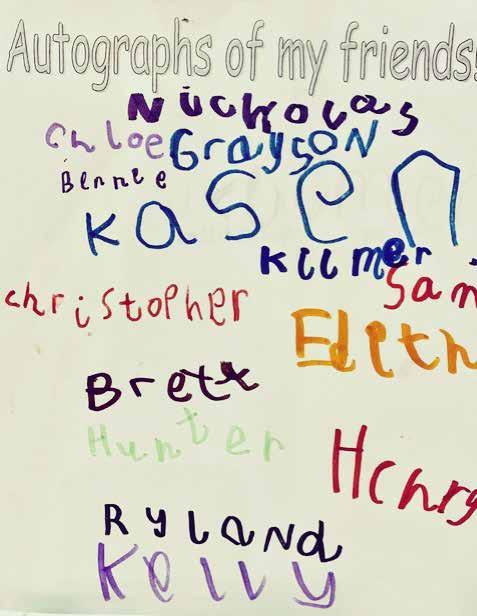 Autographs of my friends!
Nickolas
Chloe Grayson
Bennie
Kasen
Kilmer
Sam
christopher
Edith
Brett
Hunter
Henry
Ryland
Kelly